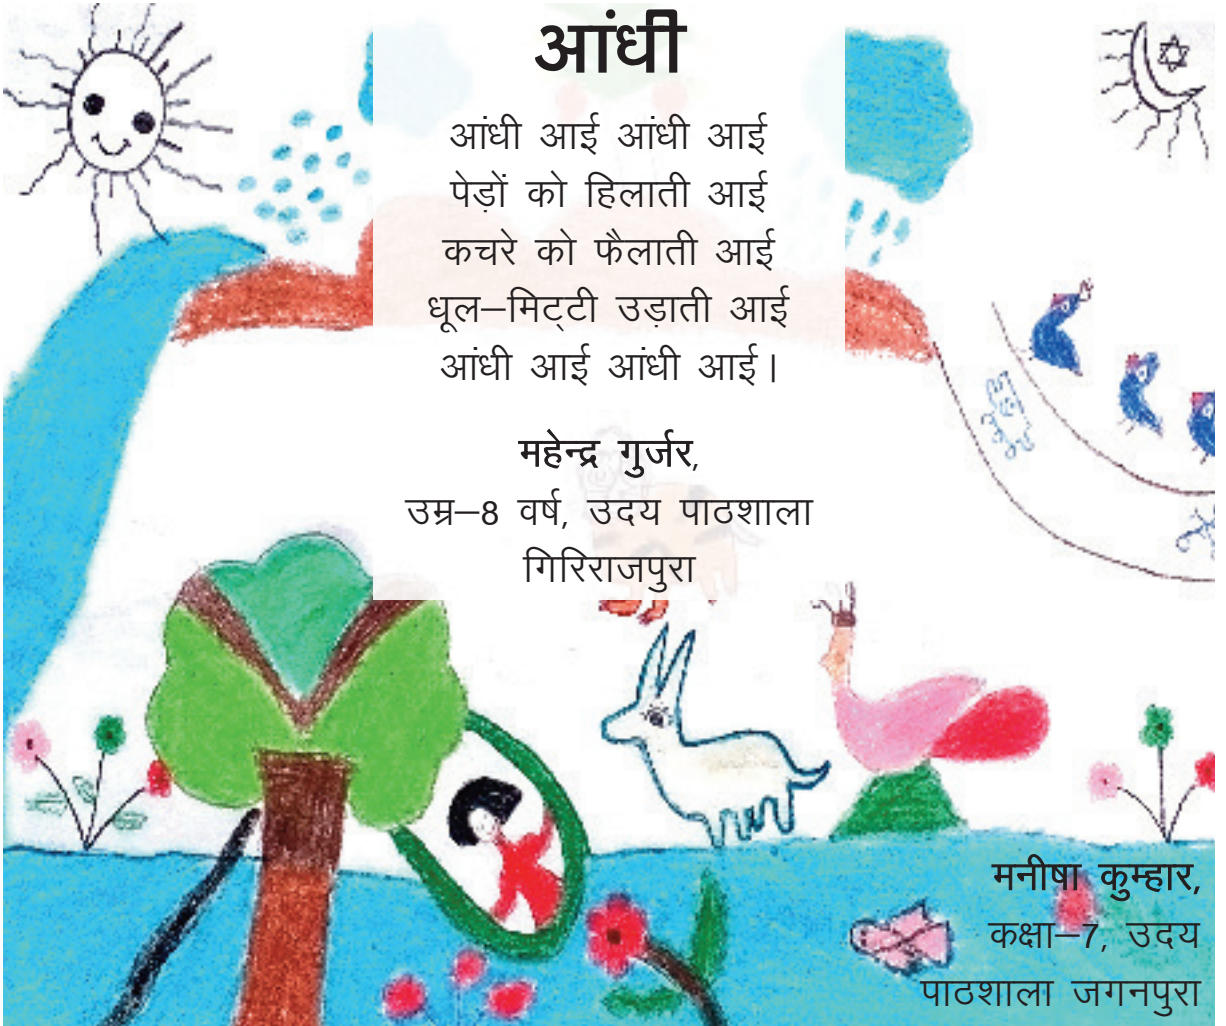 आंधी
आंधी आई आंधी आई
पेड़ों को हिलाती आई
कचरे को फैलाती आई
धूल–मिट्टी उड़ाती आई
आंधी आई आंधी आई।
महेन्द्र गुर्जर,
उम्र–8 वर्ष, उदय पाठशाला
गिरिराजपुरा
मनीषा कुम्हार,
कक्षा–7, उदय
पाठशाला जगनपुरा